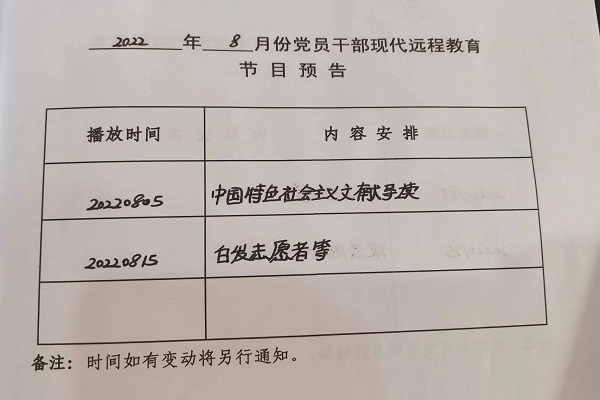 2022 年 8 月份党员干部现代远程教育
节目预告
播放时间 内容安排
20220805 中国特色社会主义文献导读
20220815 白发志愿者等
备注：时间如有变动将另行通知。